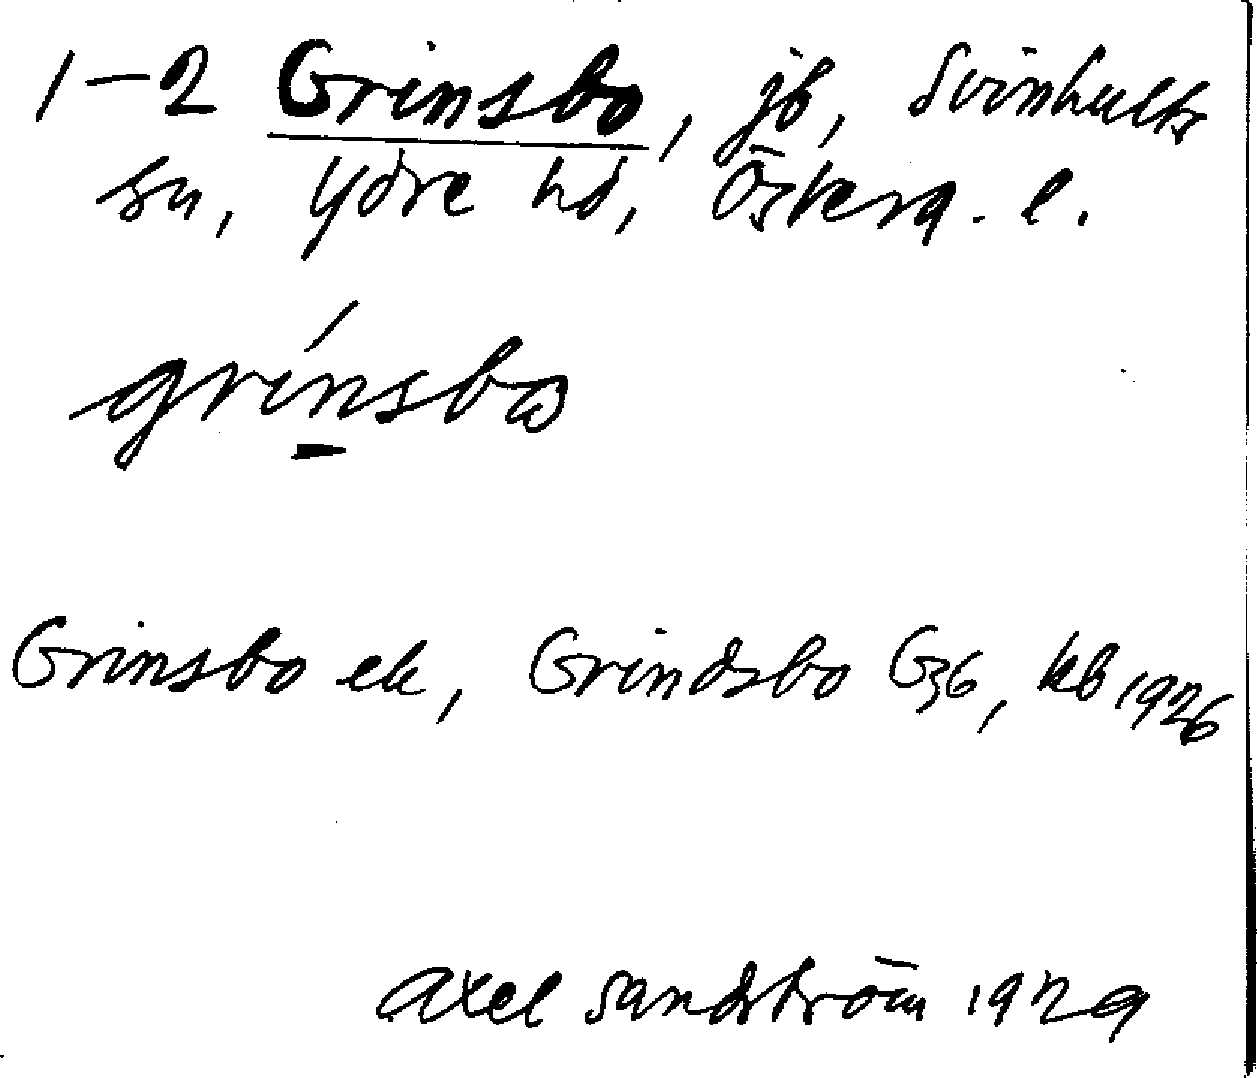 1-2 Grinsbo, jb, Svinhults
sn, Ydre hd, Österg. l.
grínsbω
Grinsbo ek, Grindsbo G36, kb 1926
Axel Sandström 1929